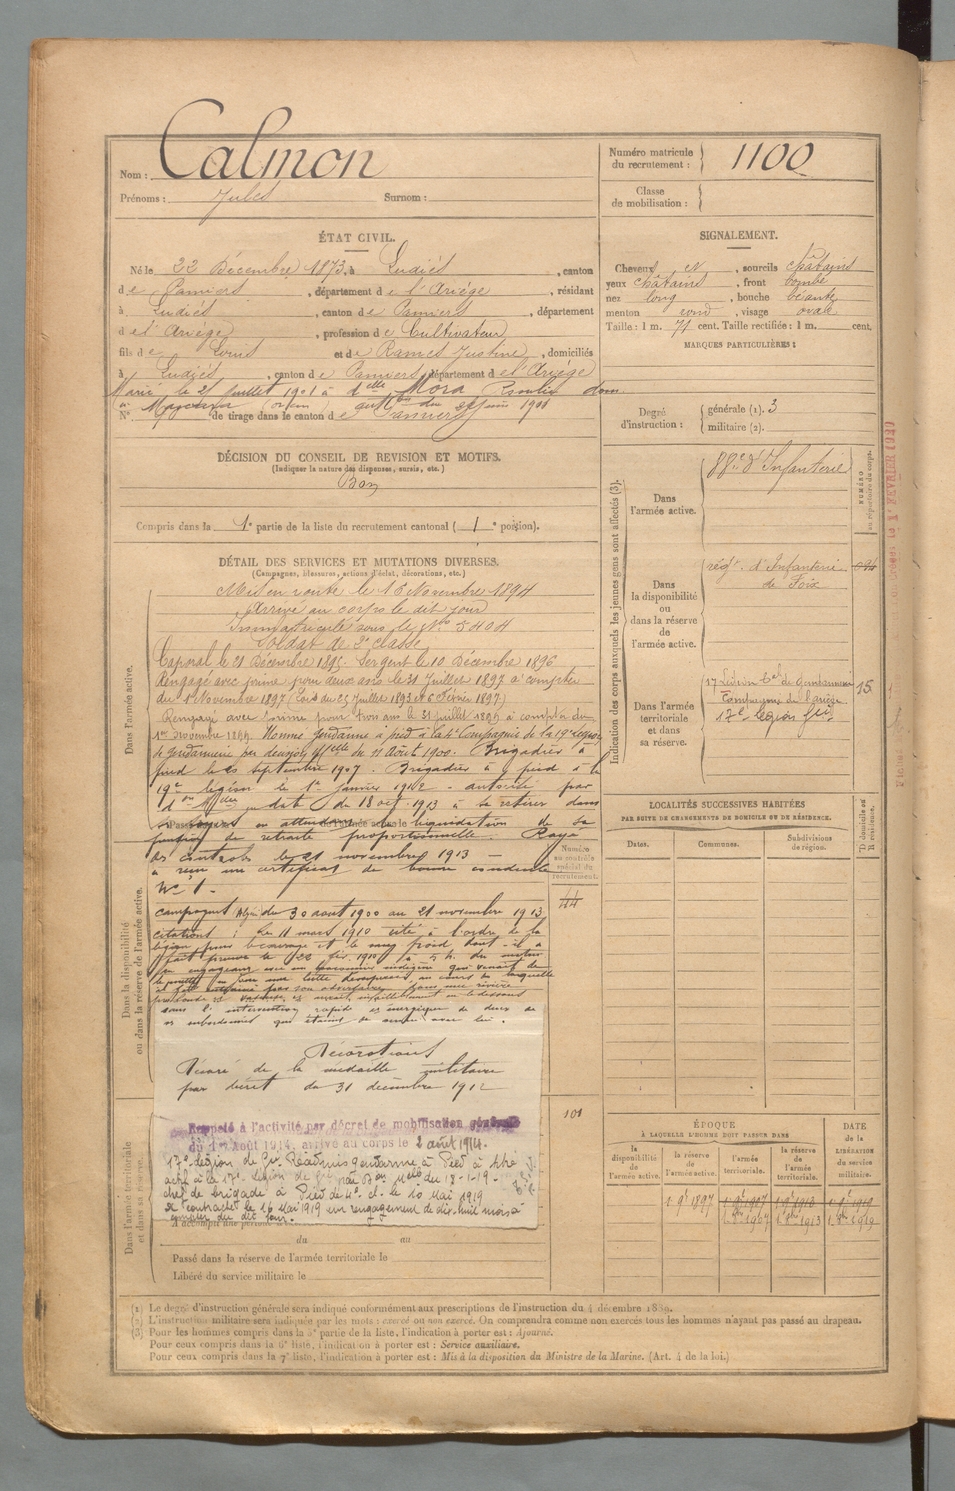 Nom : Calmon
Prénoms : Jules Surnom :
Numéro matricule du recrutement : 1100
Classe de mobilisation :
ÉTAT CIVIL.
Né le 22 Décembre 1873, à Ludiès, canton
de Pamiers, département de l'Ariège, résidant
à Ludiès, canton de Pamiers, département
de l'Ariège, profession de Cultivateur
fils de Louis et de Ramès Justine, domiciliés
à Ludiès, canton de Pamiers, département de l'Ariège
Marié le 2 Juillet 1901 à Delle Mora dom.
N° de tirage dans le canton de Pamiers
SIGNALEMENT.
Cheveux et, sourcils châtains
yeux châtains, front bombé
nez long, bouche béante
menton rond, visage ovale
Taille : 1 m. 71 cent. Taille rectifiée : 1 m. cent.
MARQUES PARTICULIÈRES :
Degré d'instruction : générale (1). 3
militaire (2).
DÉCISION DU CONSEIL DE REVISION ET MOTIFS.
(Indiquer la nature des dispenses, sursis, etc.)
Bon
Compris dans la 1e partie de la liste du recrutement cantonal ( 1 e portion).
DÉTAIL DES SERVICES ET MUTATIONS DIVERSES.
(Campagnes, blessures, actions d'éclat, décorations, etc.)
Dans l'armée active.
Mis en route le 16 Novembre 1894
Arrivé au corps le dit jour
Immatriculé sous le No 5404
Soldat de 2e classe
Caporal le 21 Décembre 1895. Sergent le 10 Décembre 1896
Rengagé avec prime pour deux ans le 31 Juillet 1897 à compter
du 1er Novembre 1897 (Lois du 25 Juillet 1893 et 6 Février 1897)
Rengagé avec prime pour trois ans le 31 juillet 1899 à compter du
1er Novembre 1899. Nommé Gendarme à pied à la 4e Compagnie de la 19e Légion
de Gendarmerie par décision Mlle du 11 Août 1900. Brigadier à
pied le 20 septembre 1907. Brigadier à pied à la
19e légion le 1er janvier 1912 - autorisé par
date du 18 oct. 1913 à se retirer dans
ses foyers en attendant la liquidation de sa
pension de retraite proportionnelle. Rayé
des contrôles le 21 novembre 1913 —
a reçu un certificat de bonne conduite
No 1.
Dans la disponibilité ou dans la réserve de l'armée active.
Numéro au contrôle spécial du recrutement.
44
campagnes Algérie du 30 août 1900 au 21 novembre 1913
citations : Le 11 mars 1910 cité à l'ordre de la
légion pour le courage et le sang froid dont il a
fait preuve le 22 fév. 1910
sans l'intervention rapide et énergique de deux de
ses subordonnés qui étaient de service avec lui.
Décorations
Décoré de la médaille militaire
par décret du 31 décembre 1912
Rappelé à l'activité par décret de mobilisation générale
du 1er Août 1914, arrivé au corps le 2 août 1914.
17e Légion de Gie. Réadmis gendarme à Pied
à la 17e légion de Gie par Don Mlle du 18-1-19
chef de brigade à Pied de 4e cl. le 10 Mai 1919
A contracté le 16 Mai 1919 un rengagement de dix-huit mois à
compter du dit jour.
101
Dans l'armée territoriale et dans sa réserve.
du au
Passé dans la réserve de l'armée territoriale le
Libéré du service militaire le
Indication des corps auxquels les jeunes gens sont affectés (3).
NUMÉRO au répertoire du corps.
Dans l'armée active.
88e d'Infanterie
Dans la disponibilité ou dans la réserve de l'armée active.
régt. d'Infanterie
de Foix
Dans l'armée territoriale et dans sa réserve.
17 Légion tale de Gendarmerie
Compagnie de l'Ariège
17e légion
15
LOCALITÉS SUCCESSIVES HABITÉES
PAR SUITE DE CHANGEMENTS DE DOMICILE OU DE RÉSIDENCE.
D. domicile ou R. résidence.
Dates. Communes. Subdivisions de région.
ÉPOQUE
À LAQUELLE L'HOMME DOIT PASSER DANS
DATE de la LIBÉRATION du service militaire.
la disponibilité de l'armée active.
la réserve de l'armée active.
l'armée territoriale.
la réserve de l'armée territoriale.
1.9e 1897 1.9e 1907 1.9e 1913 1.9e 1919
1907 1913 1919
(1) Le degré d'instruction générale sera indiqué conformément aux prescriptions de l'instruction du 4 décembre 1889.
(2) L'instruction militaire sera indiquée par les mots : exercé ou non exercé. On comprendra comme non exercés tous les hommes n'ayant pas passé au drapeau.
(3) Pour les hommes compris dans la 5e partie de la liste, l'indication à porter est : Ajourné.
Pour ceux compris dans la 6e liste, l'indication à porter est : Service auxiliaire.
Pour ceux compris dans la 7e liste, l'indication à porter est : Mis à la disposition du Ministre de la Marine. (Art. 4 de la loi.)